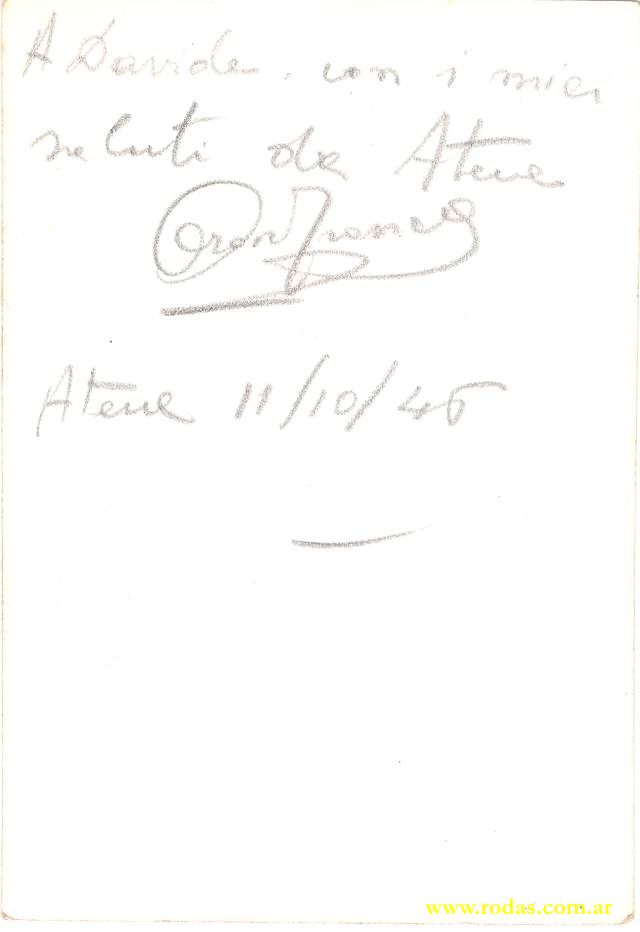 A Davide con i miei
saluti da Atene
Atene 11/10/45
www.rodas.com.ar